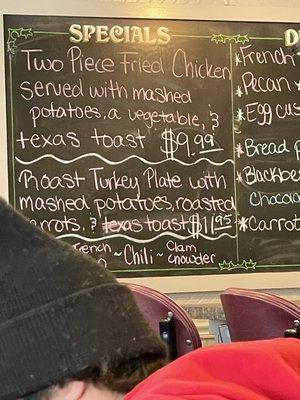 SPECIALS
Two Piece Fried Chicken
served with mashed
potatoes, a vegetable, &
texas toast $9.99
Roast Turkey Plate with
Mashed potatoes, roasted
carrots, & texas toast $11.95
French ~ Chili ~ Clam
chowder
*French
*Pecan
*Egg cus
*Bread p
*Blackbe
Chocola
*Carrot